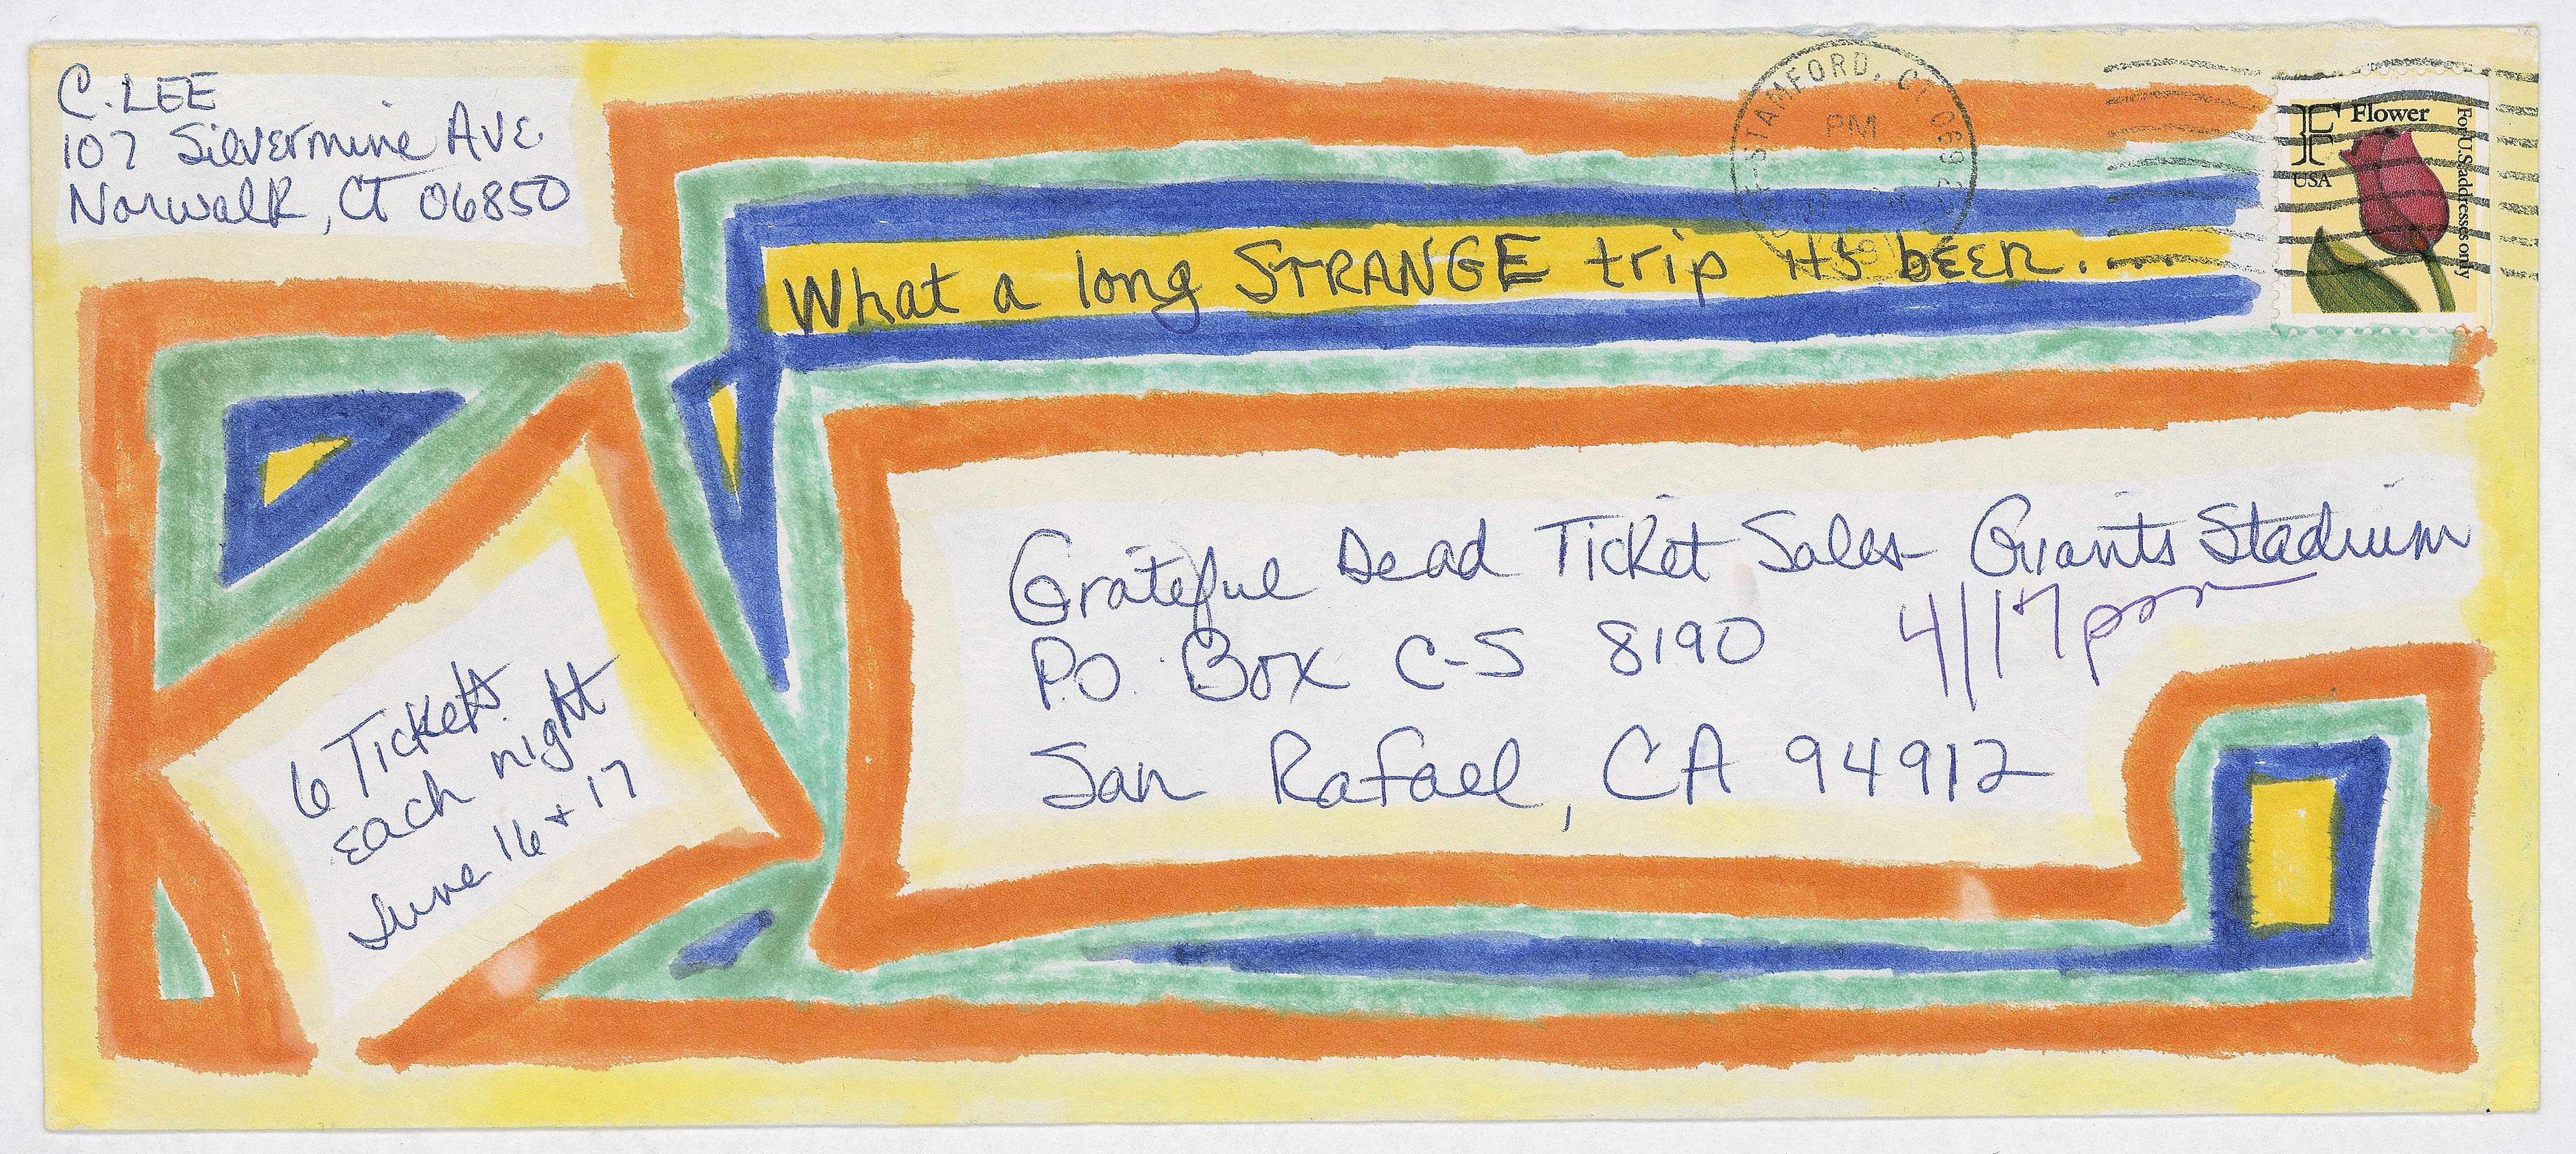 C. LEE
107 Silvermine AVE
Norwalk, CT 06850
STAMFORD, CT 069
PM
F Flower
USA
For U.S. addresses only
What a long STRANGE trip it's been.....
Grateful Dead Ticket Sales- Giants Stadium
P.O. Box C-S 8190
4/17 pm
San Rafael, CA 94912
6 Tickets
each night
June 16 + 17